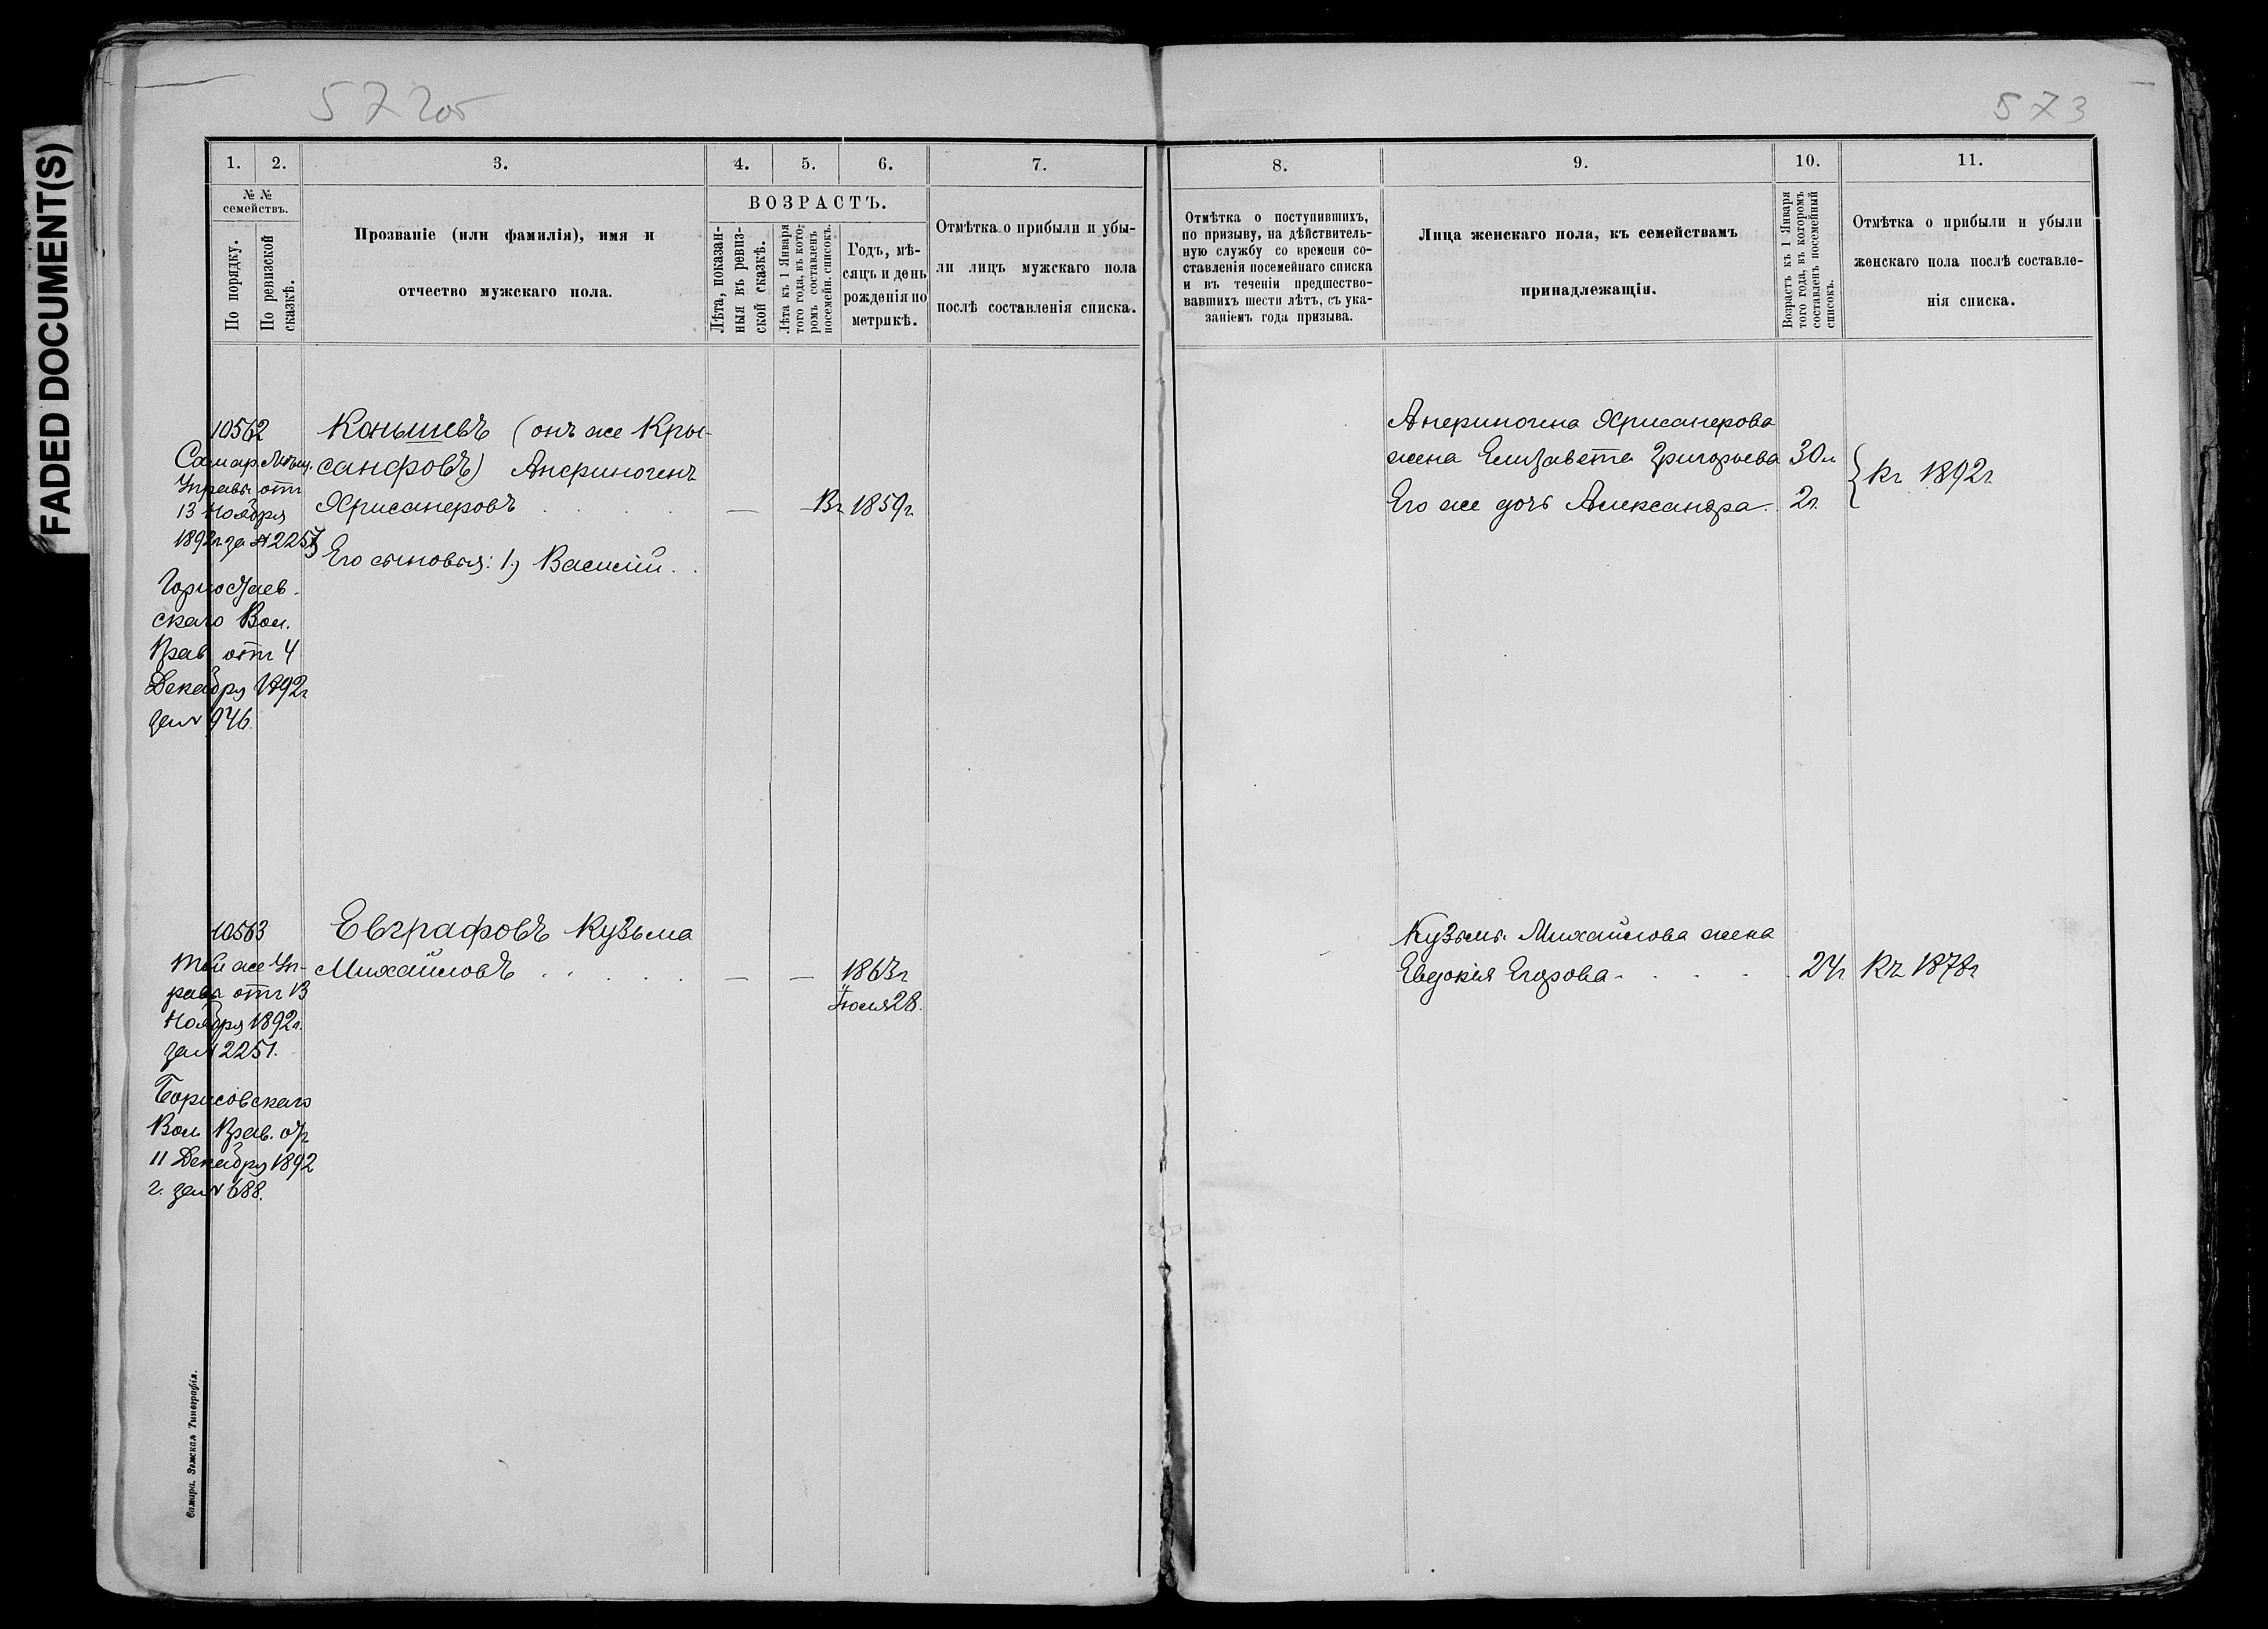 FADED DOCUMENT(S)
572об
573
1. 2. 3. 4. 5. 6. 7.
№ №
семействъ.
По порядку.
По ревизской
сказкѣ.
Прозваніе (или фамилія), имя и
отчество мужскаго пола.
ВОЗРАСТЪ.
Лѣта, показан-
ныя въ ревиз-
ской сказкѣ.
Лѣта къ 1 Января
того года, въ кото-
ромъ составленъ
посемейн. списокъ.
Годъ, мѣ-
сяцъ и день
рожденія по
метрикѣ.
Отмѣтка о прибыли и убы-
ли лицъ мужскаго пола
послѣ составленія списка.
10562
Самар. Мѣщ.
Управы отъ
13 Ноября
1892г. за №
Горностаев-
скаго Вол.
Прав. отъ 4
Декабря 1892г
за № 946.
Конышевъ (онъ же Кры-
санфовъ) Анфриногенъ
Хрисанфовъ — Въ 1859г
Его сыновья: 1) Василій
10563
Той же Уп-
равы отъ 13
Ноября 1892г.
за № 2251.
Борисовскаго
Вол. Прав. отъ
11 Декабря 1892
г. за № 688.
Евграфовъ Кузьма
Михайловъ — — 1863г
Іюля 28.
Самара. Земская Типографія.
8. 9. 10. 11.
Отмѣтка о поступившихъ,
по призыву, на дѣйствитель-
ную службу со времени со-
ставленія посемейнаго списка
и въ теченіи предшество-
вавшихъ шести лѣтъ, съ ука-
заніемъ года призыва.
Лица женскаго пола, къ семействамъ
принадлежащія.
Возрастъ къ 1 Января
того года, въ которомъ
составленъ посемейный
списокъ.
Отмѣтка о прибыли и убыли
женскаго пола послѣ составле-
нія списка.
Анфриногена Хрисанфова
жена Елизавета Григорьева 30л
Его же дочь Александра 2г.
къ 1892г
Кузьмы Михайлова жена
Евдокія Егорова 24г Къ 1878г